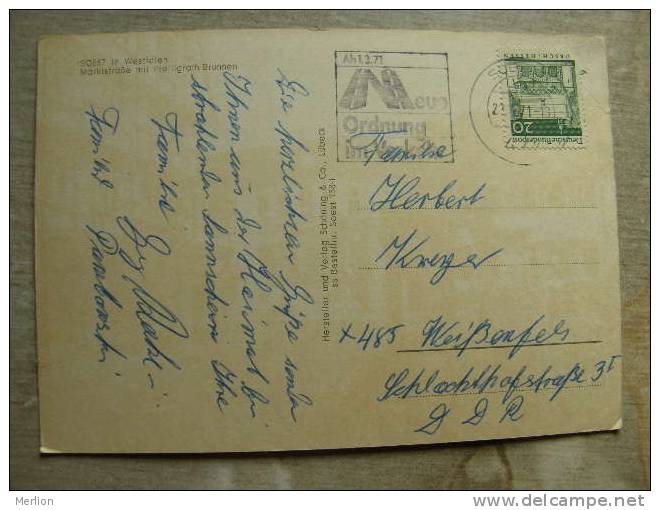 SOEST in Westfalen
Marktstraße mit Freiligrath-Brunnen
Die herzlichsten Grüße senden
Ihnen aus der Heimat bei
strahlendem Sonnenschein Ihre
Familie
Familie
Hersteller und Verlag Schöning & Co., Lübeck
Soest
Ab 1.3.71
Neue
Ordnung
im
DEUTSCHE BUNDESPOST
20
Familie
Herbert
Kreyer
x 485 Weißenfels
Schlachthofstraße 3 I
D D R
Merlion
www.delcampe.net